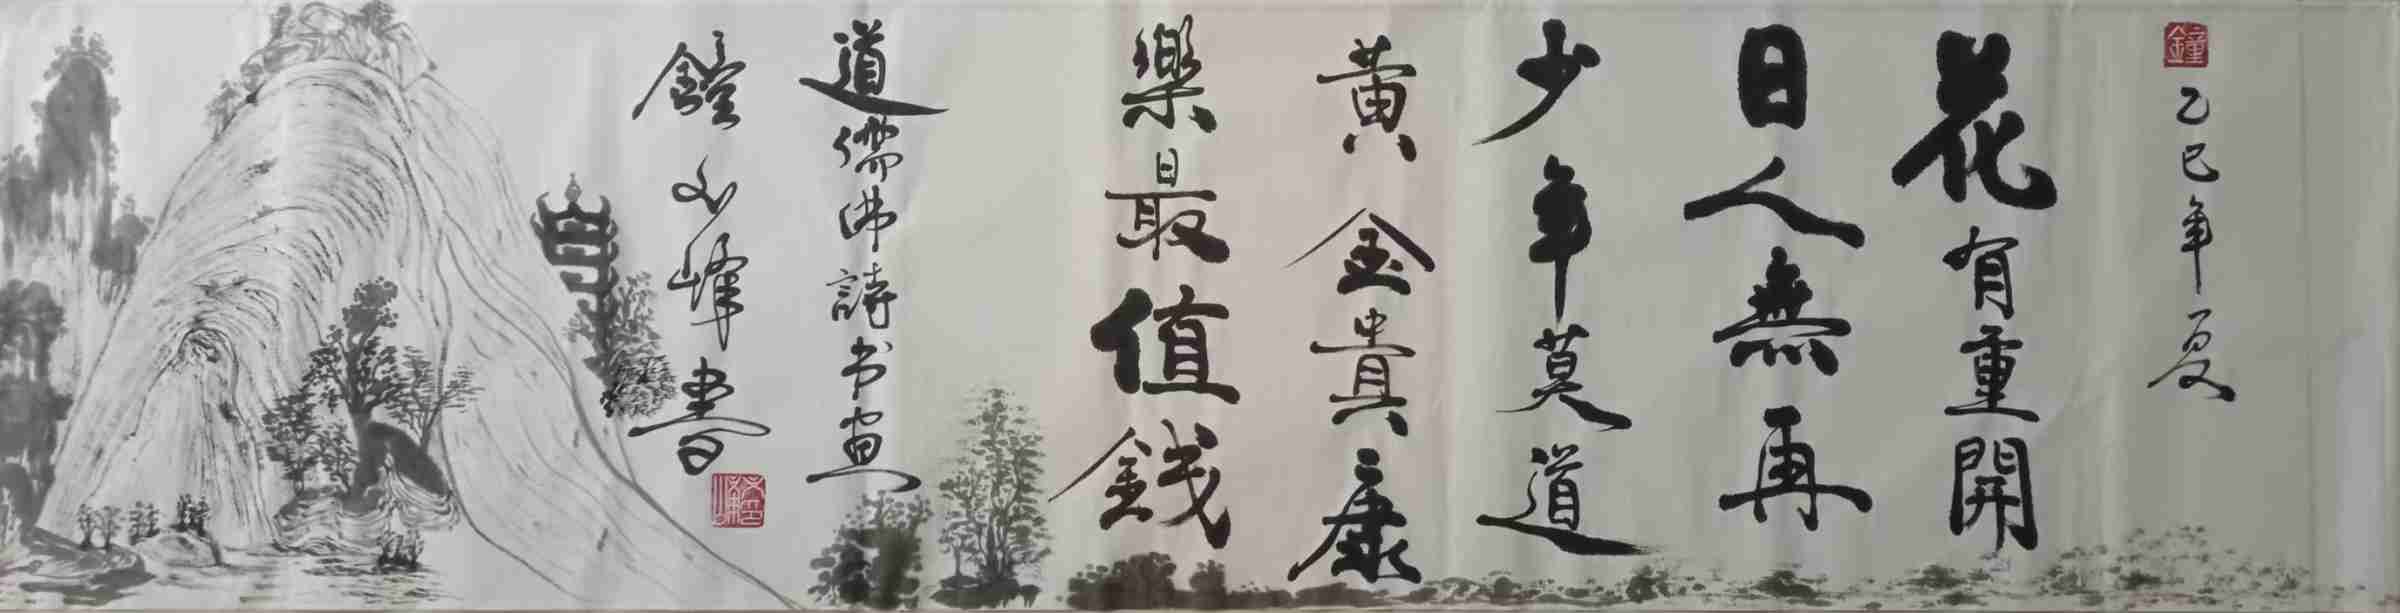 鐘
乙巳年夏
花有重開
日人無再
少年莫道
黃金貴康
樂最值錢
道儒佛詩书画
鐘文峰書